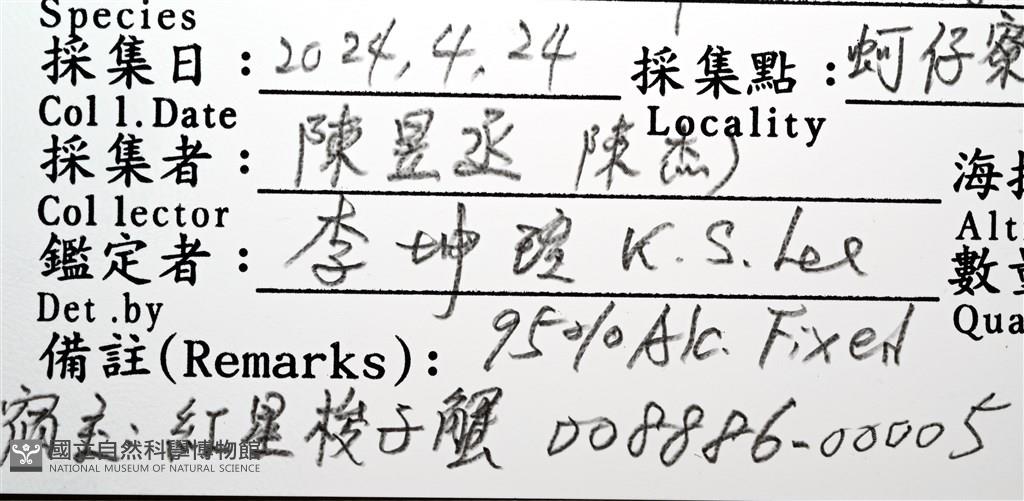 Species
採集日：2024.4.24 採集點：蚵仔寮
Coll.Date Locality
採集者：陳昱丞 陳杰
Collector 海拔
鑑定者：李坤瑄 K.S.Lee
Alt
Det.by 數量
備註(Remarks)：95%Alc. Fixed Qua
宿主:紅星梭子蟹 008886-00005
國立自然科學博物館
NATIONAL MUSEUM OF NATURAL SCIENCE